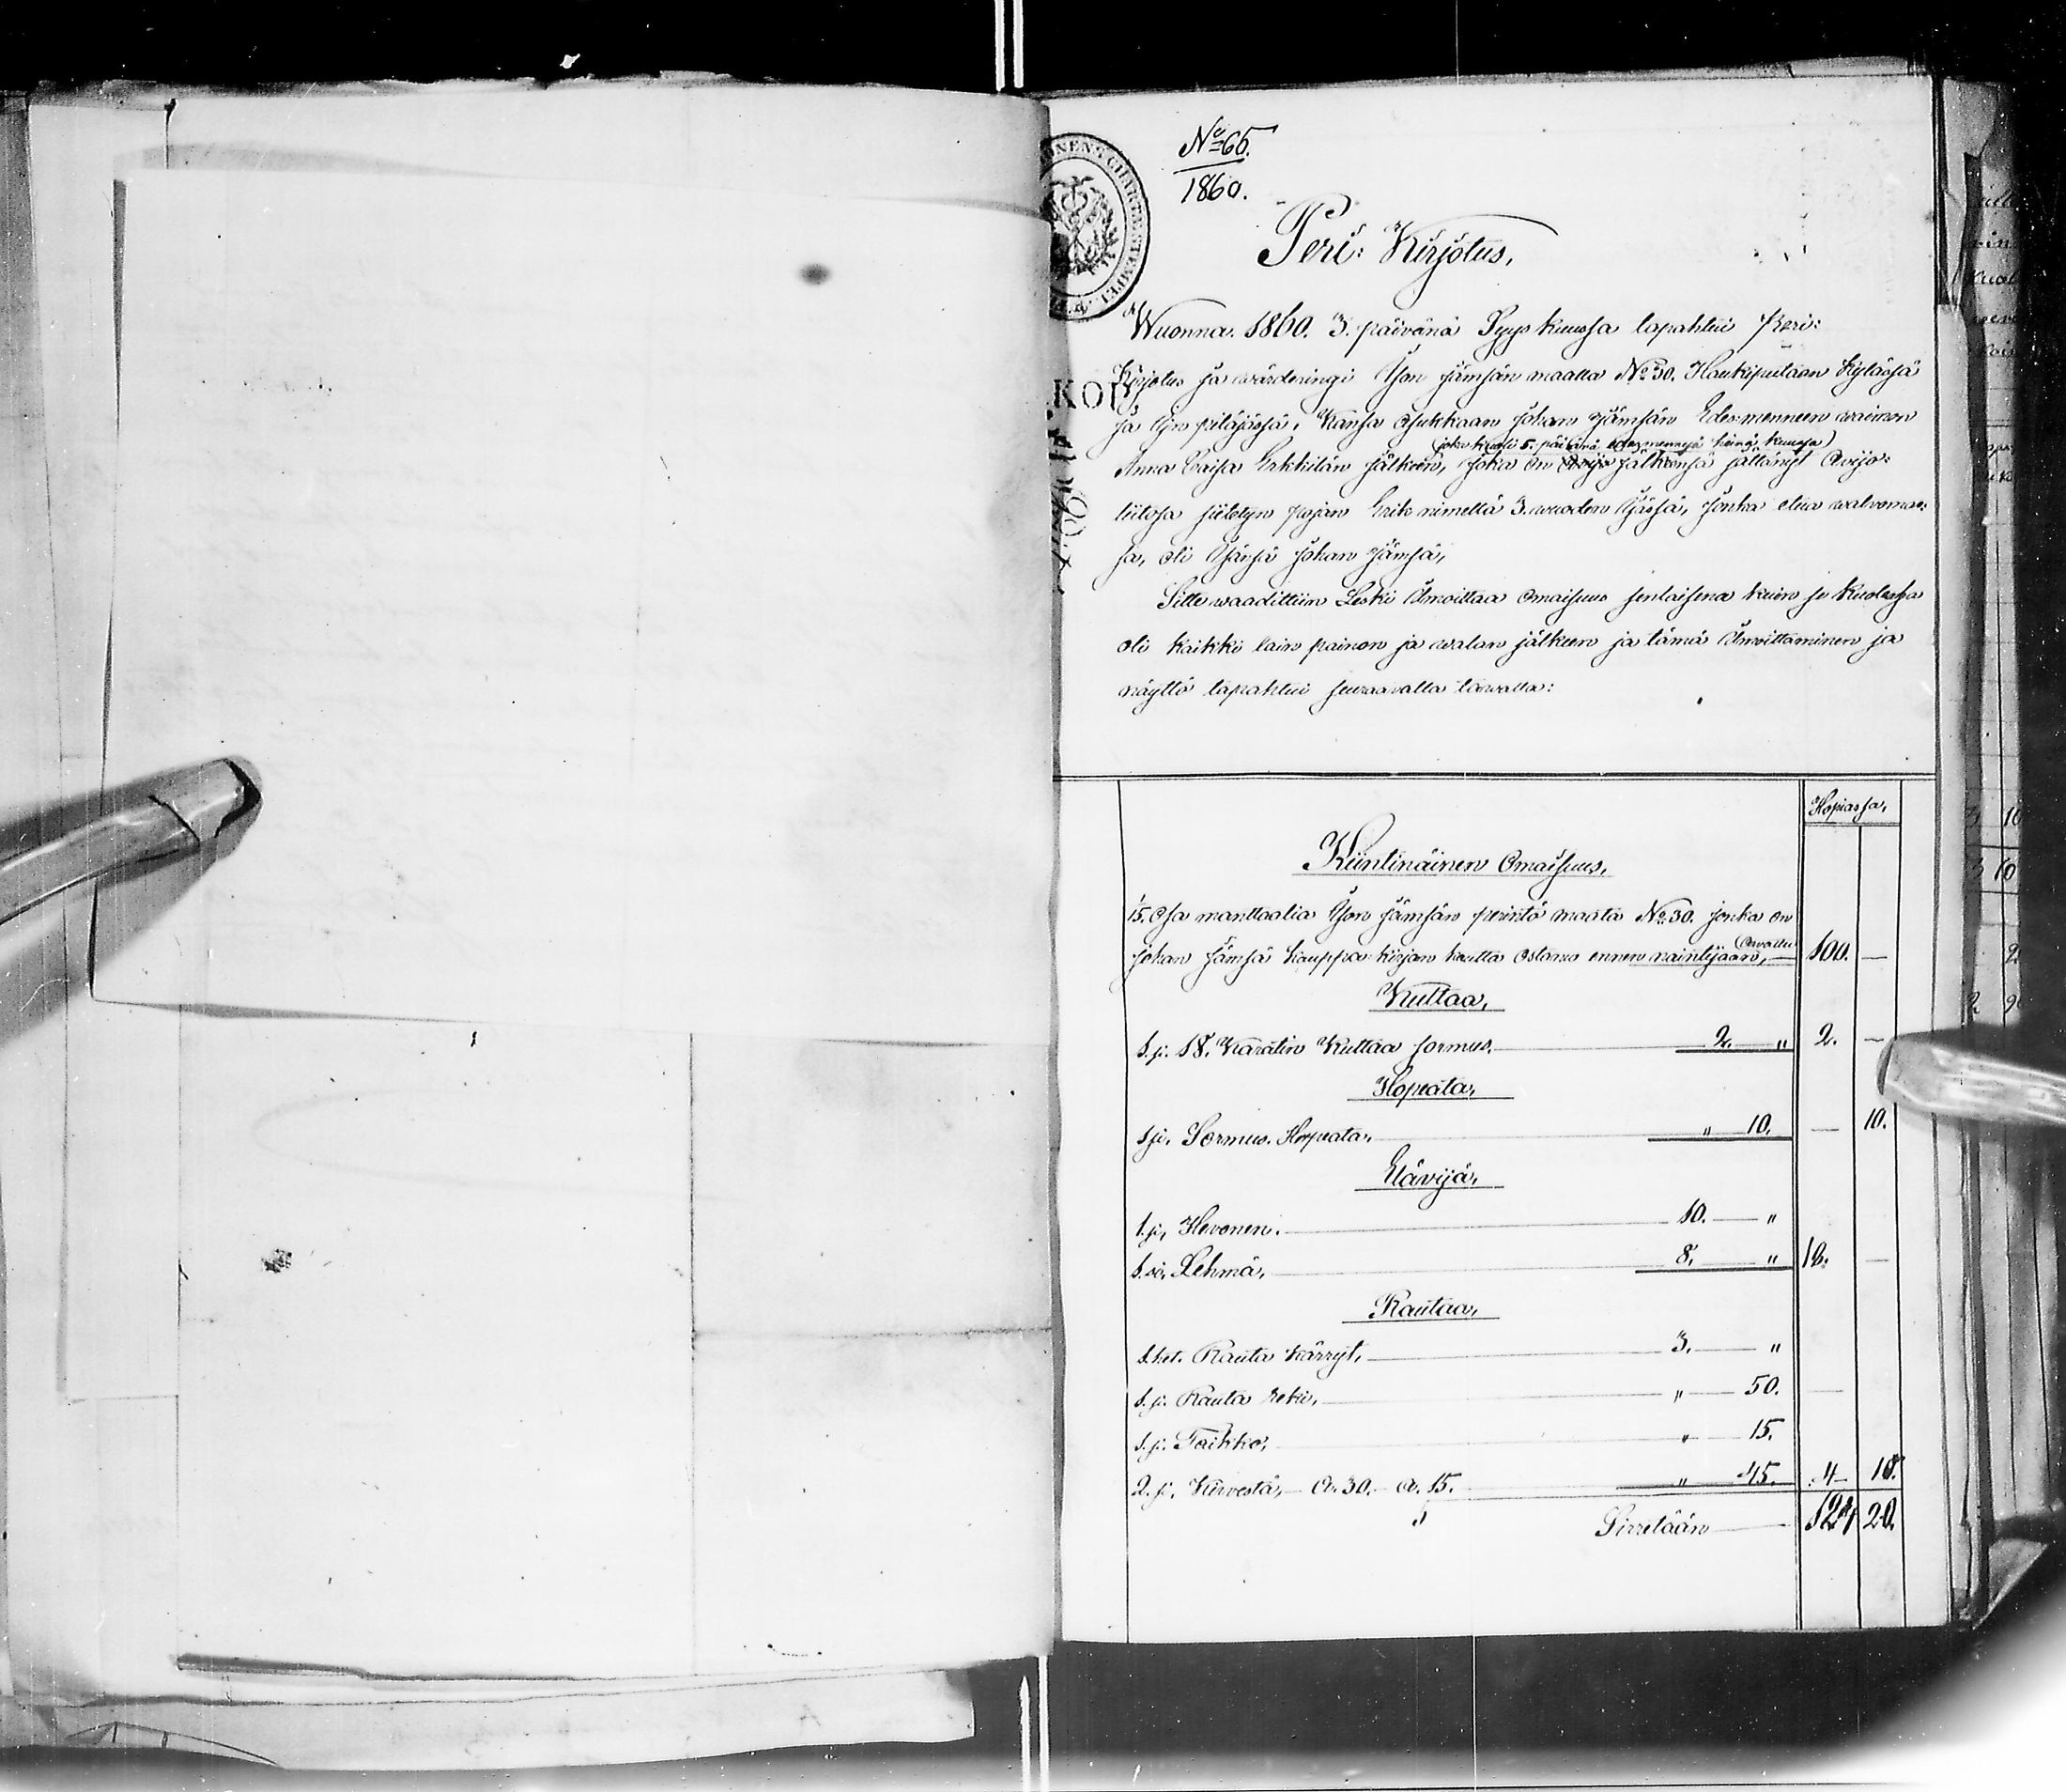 No 65.
1860.
Peri: Kirjotus,
Wuonna. 1860. 3. päivänä Syys kuussa tapahtui Peri:
Kirjotus ja wärderingi Yson Jämsän maalla No 30. Haukiputaan Kylässä
ja Ijn pitäjässä, Kansa Asukkaan Johan Jämsän Edes-menneen waimon
(joka kuoli 5. päivänä edesmennyjä heinä, kuussa)
Anna Caisa Erkkilän jälkeen, joka on jälkensä jättänyt Avijo:
liitosa siitetyn pojan Erik nimeltä 3. wuoden Jjässä, jonka etua walvomas:
sa, oli Jsänsä Johan Jämsä,
Sitte waadittiin Leski Ilmoittaa Omaisuus senlaisena kuin se kuolessa
oli kaikki lain painon ja walan jälkeen ja tämä Ilmoittaminen ja
näyttö tapahtui seuraavalla tawalla:
Hopiassa,
Kiintinäinen Omaisuus,
15. Osa manttaalia Yson Jämsän perintö maata No 30. jonka on
(Arvattu
Johan Jämsä kauppa-kirjan kautta Ostanu ennen naintijaan, 100. —
Kultaa,
1. p. 18. Karatin Kultaa sormus. 2. " 2. —
Hopeata,
1 p. Sormus. Hopeata. " 10. — 10.
Elävijä,
1. p, Hevonen. 10. "
1. Lehmä, 8. " 18. —
Rautaa,
1. ket. Rauta kärryt, 3. "
1. p. Rauta reki, " 50.
1. p. Taikko, " 15.
2. p. Kirvestä, A. 30. A. 15. " 45. 4 10.
Sirretään 124 20.